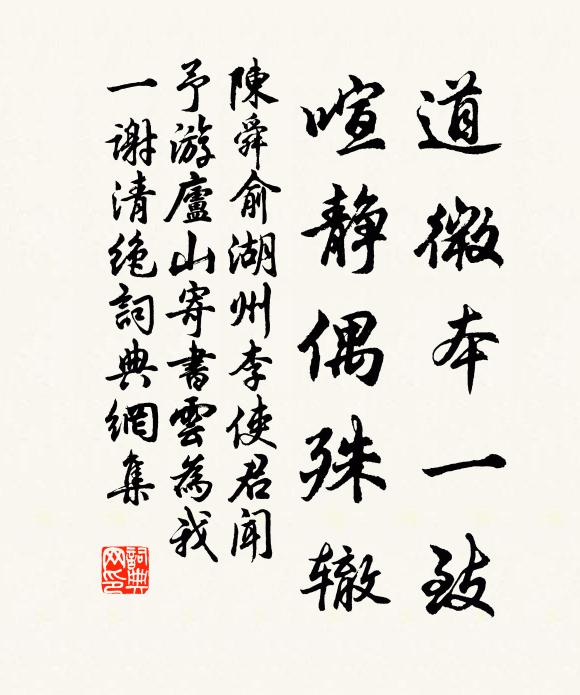 道微本一致
喧静偶殊辙
陳舜俞湖州李使君聞
予游廬山寄書雲為我
一謝清絶詞典網集
詞典网印